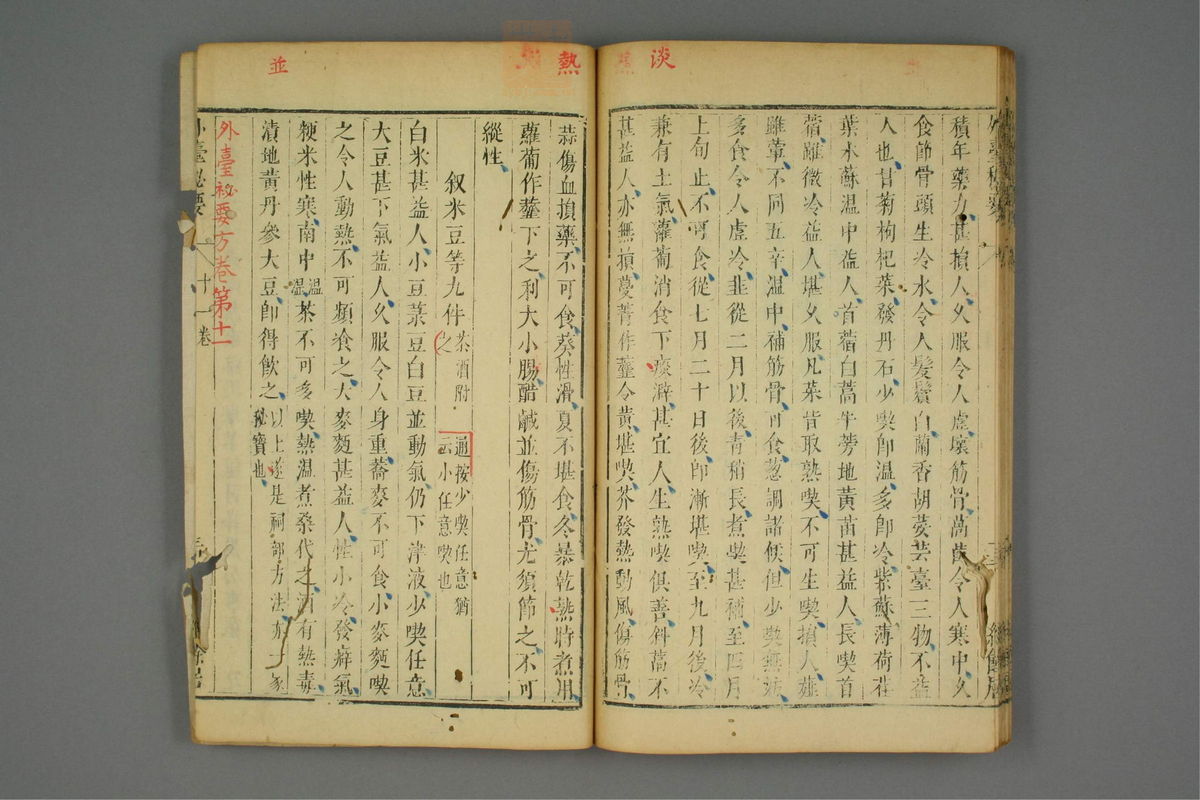 淡
積年藥力甚損人久服令人虛壞筋骨萵苣令人寒中久
食節骨頭生冷水令人髪鬢白蘭香胡荽芸臺三物不益
人也甘菊枸杞葉發丹石少喫即温多即冷紫蘇薄荷荏
葉水蘇温中益人首蓿白蒿牛蒡地黃苗甚益人長喫首
蓿雖微冷益人堪久服凡菜皆取熟喫不可生喫損人薤
雖葷不同五辛温中補筋骨可食葱調諸候但少喫無妨
多食令人虛冷韭從二月以後青稍長煮喫甚補至四月
上旬止不可食從七月二十日後即漸堪喫至九月後冷
兼有土氣蘿蔔消食下痰澼甚宜人生熟喫俱善斜蒿不
甚益人亦無損蔓菁作虀令黃堪喫芥發熱動風傷筋骨
熱
蒜傷血損藥不可食葵性滑夏不堪食冬暴乾熟時煮用
蘿蔔作虀下之利大小腸醋鹹並傷筋骨尤須節之不可
縱性
叙米豆等九件 茶酒附之 通按少喫任意猶云小任意喫也
白米甚益人小豆菉豆白豆並動氣仍下津液少喫任意
大豆甚下氣益人久服令人身重蕎麥不可食小麥麵喫
之令人動熱不可頻飡之大麥麵甚益人性小冷發癖氣
並
粳米性寒南中温温茶不可多喫熱温煮桑代之酒有熱毒
漬地黃丹參大豆即得飲之 以上遂是祠部方法亦一家秘寶也
外臺祕要方卷第十一
外臺祕要 十一卷